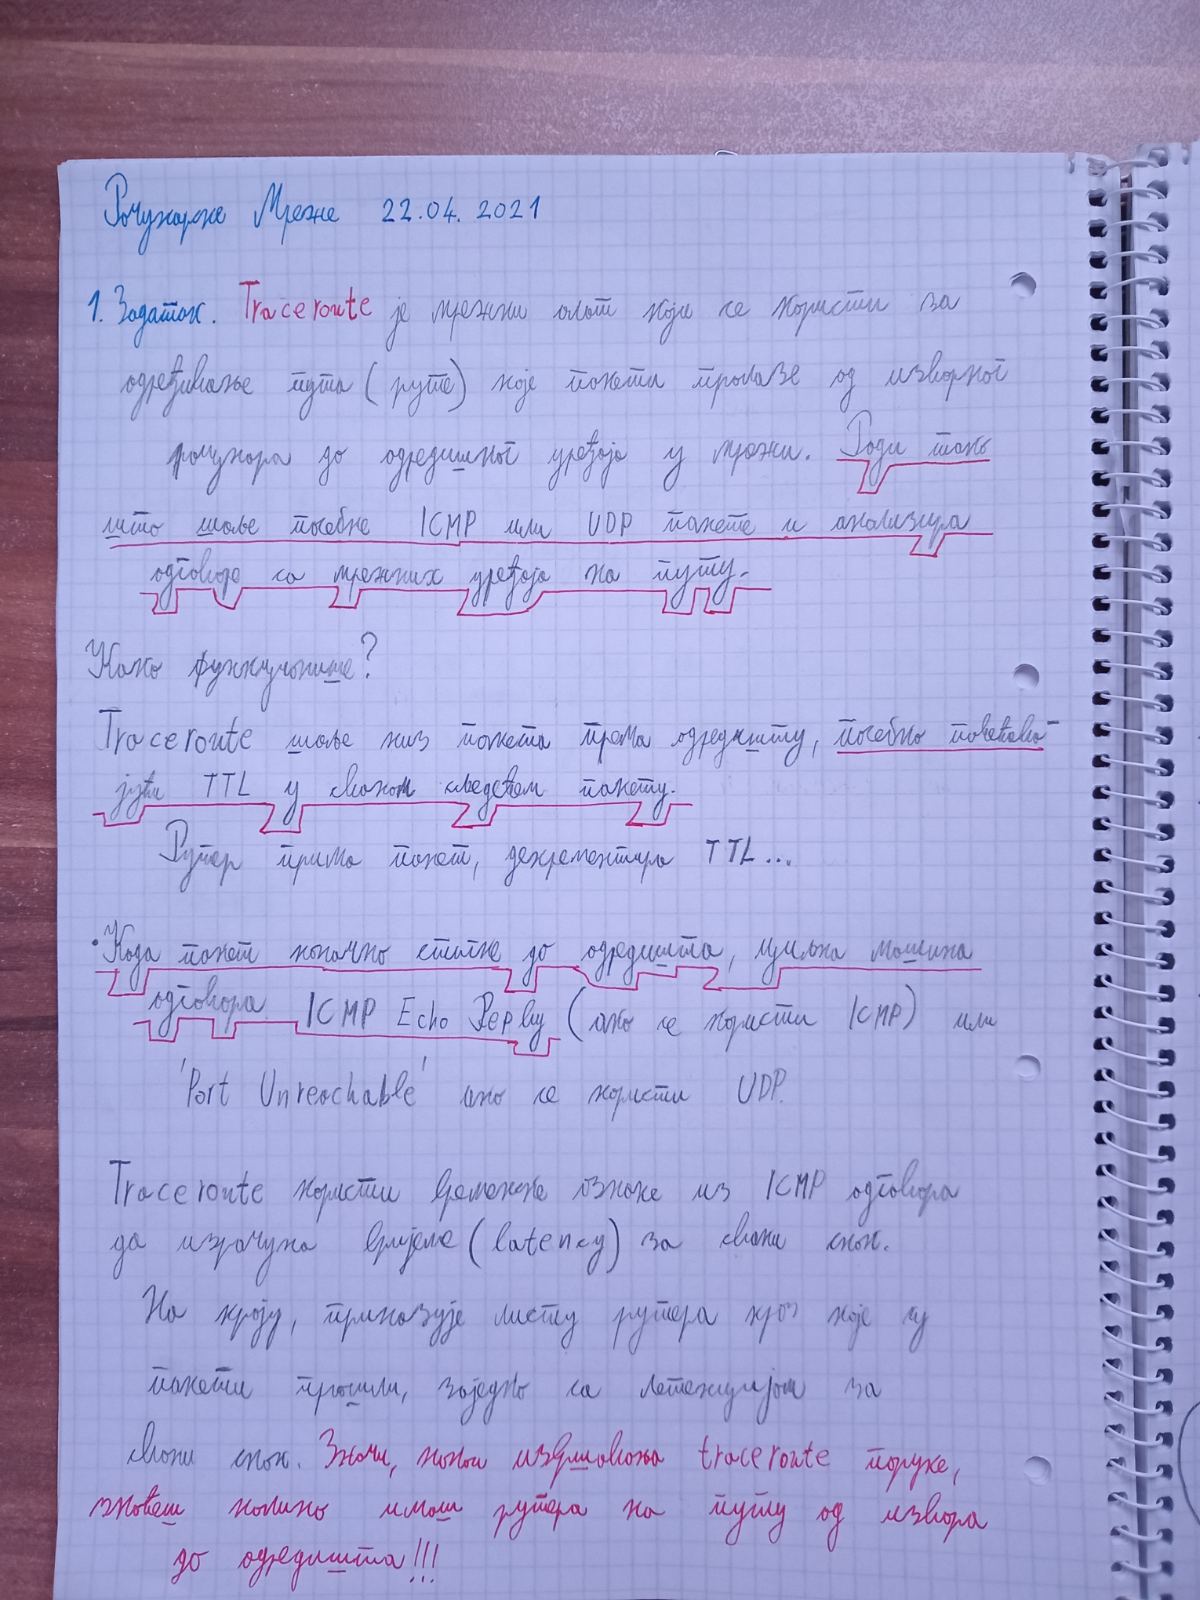 Рачунарске Мреже 22.04.2021
1. Задатак. Traceroute је мрежни алат који се користи за
одређивање пута (руте) које пакети пролазе од изворног
рачунара до одредишног уређаја у мрежи. Ради тако
што шаље посебне ICMP или UDP пакете и анализира
одговоре са мрежних уређаја на путу.
Како функционише?
Traceroute шаље низ пакета према одредишту, посебно повећава-
јући TTL у сваком следећем пакету.
Рутер прима пакет, декрементира TTL...
• Када пакет коначно стигне до одредишта, циљна машина
одговара ICMP Echo Reply (ако се користи ICMP) или
'Port Unreachable' ако се користи UDP.
Traceroute користи временске ознаке из ICMP одговора
да израчуна вријеме (latency) за сваки скок.
На крају, приказује листу рутера кроз које су
пакети прошли, заједно са латенцијом за
сваки скок. Значи, након извршавања traceroute поруке,
знаћеш колико имаш рутера на путу од извора
до одредишта!!!